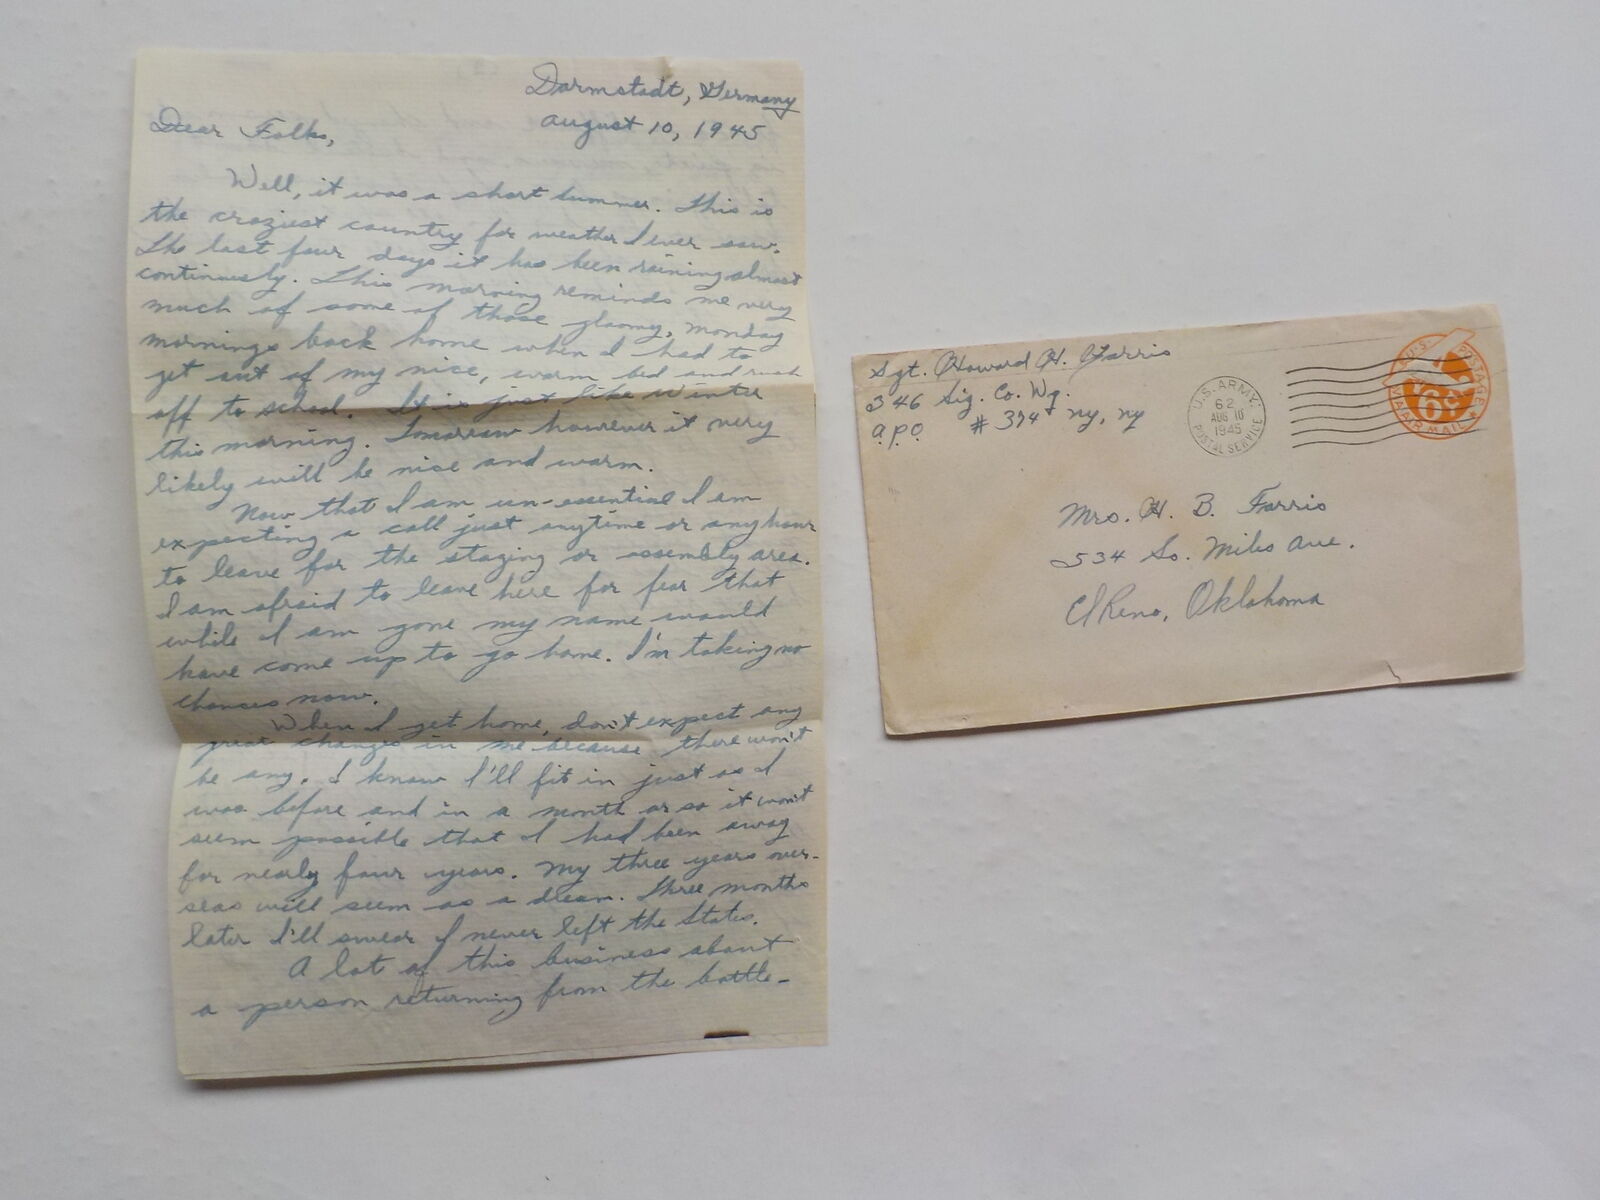 Darmstadt, Germany
August 10, 1945
Dear Folks,
Well, it was a short summer. This is
the craziest country for weather I ever saw.
The last four days it has been raining almost
continuously. This morning reminds me very
much of some of those gloomy, Monday
mornings back home when I had to
get out of my nice, warm bed and rush
off to school. It is just like Winter
this morning. Tomorrow however it very
likely will be nice and warm.
Now that I am un-essential I am
expecting a call just anytime or any hour
to leave for the staging or assembly area.
I am afraid to leave here for fear that
while I am gone my name would
have come up to go home. I'm taking no
chances now.
When I get home, don't expect any
great changes in me because there won't
be any. I know I'll fit in just as I
was before and in a month or so it won't
seem possible that I had been away
for nearly four years. My three years over-
seas will seem as a dream. Three months
later I'll swear I never left the States.
A lot of this business about
a person returning from the battle-
Sgt. Howard H. Farris
346 Sig. Co. Wg.
A.P.O. # 374 NY, NY
U.S. ARMY
62
AUG 10
1945
POSTAL SERVICE
U.S. POSTAGE
6¢
VIA AIR MAIL
Mrs. H. B. Farris
534 So. Miles Ave.
El Reno, Oklahoma